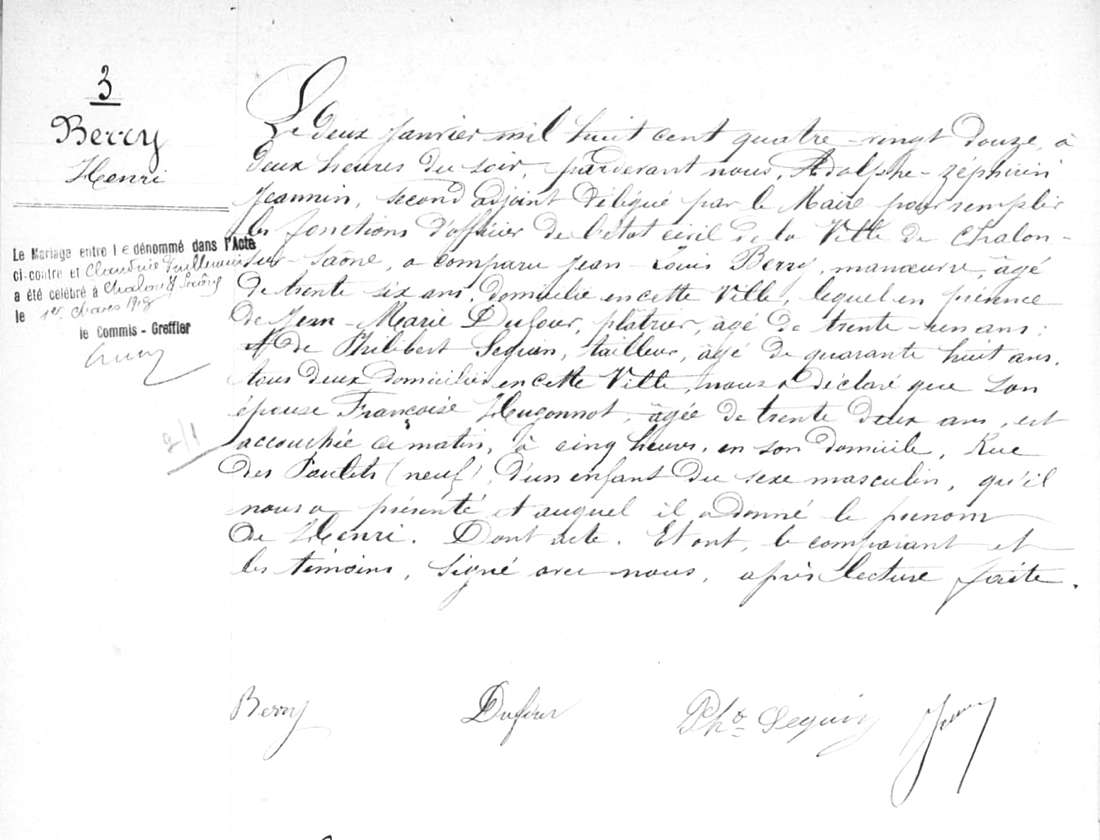 3
Berry
Henri
Le Mariage entre le dénommé dans l'Acte
ci-contre et Claudine Vuillemin
a été célébré à Chalon s/ Saône
le 1er Mars 1918
le Commis - Greffier
2/1
Le deux Janvier mil huit cent quatre-vingt douze, à
deux heures du soir, pardevant nous, Adolphe-Zéphirin
Jeannin, second adjoint délégué par le Maire pour remplir
les fonctions d'officier de l'état civil de la Ville de Chalon-
sur Saône, a comparu Jean-Louis Berry, manœuvre, âgé
de trente six ans, domicilié en cette Ville, lequel en présence
de Jean-Marie Dufour, platrier, âgé de trente-un ans;
Et de Philibert Seguin, tailleur, âgé de quarante huit ans,
tous deux domiciliés en cette Ville, nous a déclaré que Son
épouse Françoise Hugonnot, âgée de trente deux ans, est
accouchée ce matin, à cinq heures, en son domicile, Rue
des Poulets (neuf), d'un enfant du sexe masculin, qu'il
nous a présenté et auquel il a donné le prénom
de Henri. Dont acte. Et ont, le comparant et
les témoins, Signé avec nous, après lecture faite.
Berry Dufour Phte Seguin